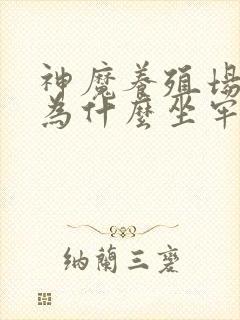 神魔養殖場
為什麼坐牢
納蘭三夔